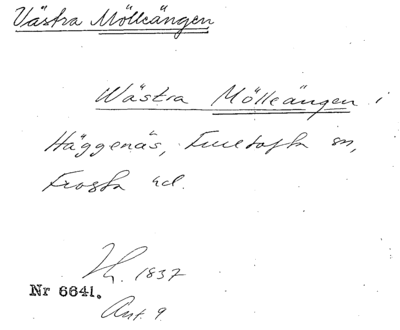 Västra Mölleängen
Wästra Mölleängen i
Häggenäs, Fulltofta sn,
Frosta hd.
Lh. 1837
Nr 6641.
Ant. 9